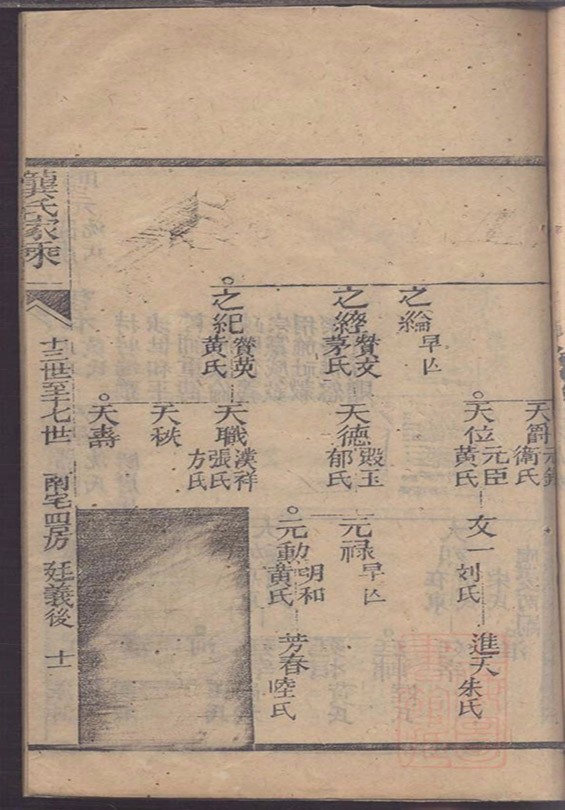 天爵
衛氏
天位 元臣
黃氏
文一 刘氏
進天 朱氏
之綸 早亾
之經 贊文
茅氏
天德 毀玉
郁氏
元禄 早亾
之紀 贊英
黃氏
天職 漢祥
張氏
方氏
元動 明和
黃氏
芳春 陸氏
天秩
天壽
龔氏家乘
十三世至十七世 南宅四房 廷義後 十一